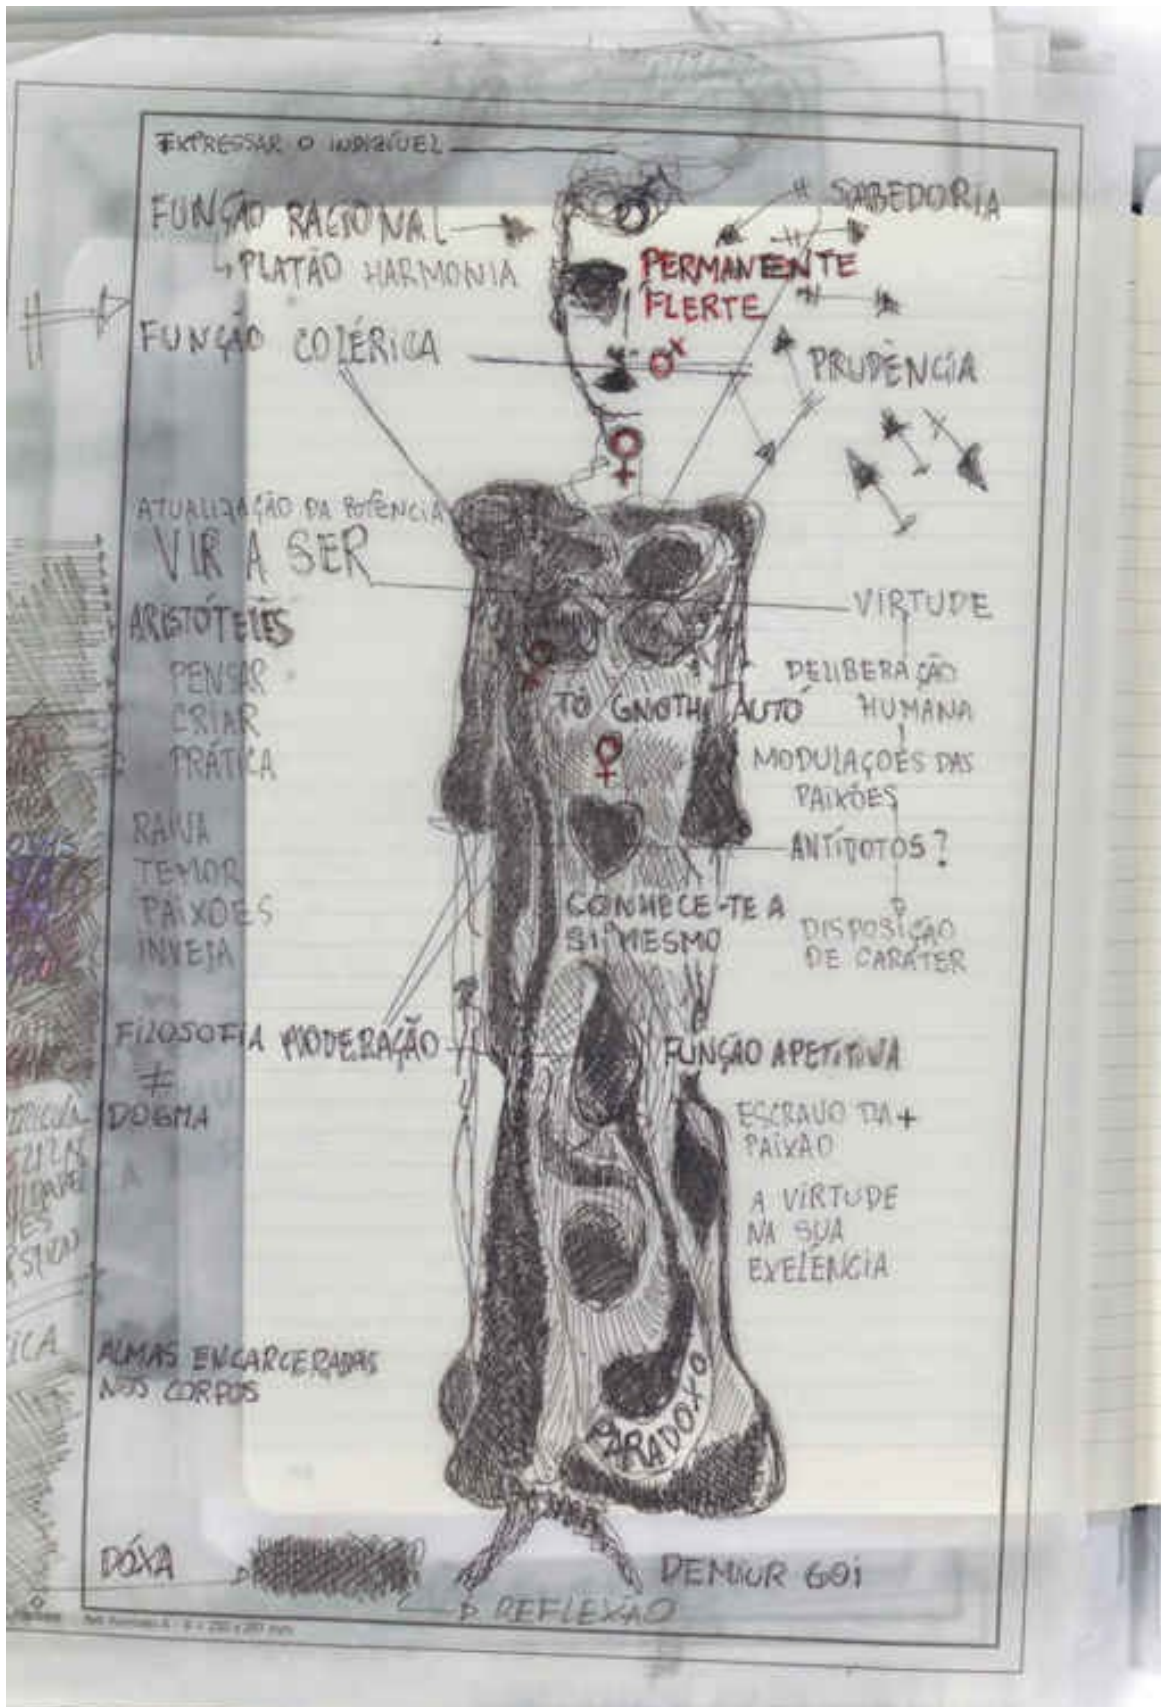 EXPRESSAR O INDIZÍVEL
FUNÇÃO RACIONAL
SABEDORIA
PLATÃO HARMONIA
PERMANENTE
FLERTE
FUNÇÃO COLÉRICA
PRUDÊNCIA
ATUALIZAÇÃO DA POTÊNCIA
VIR A SER
VIRTUDE
ARISTÓTELES
PENSAR
CRIAR
PRÁTICA
DELIBERAÇÃO
HUMANA
TÒ GNOTHI AUTÓ
MODULAÇÕES DAS
PAIXÕES
RAIVA
TEMOR
PAIXOES
INVEJA
ANTÍDOTOS?
CONHECE-TE A
SI MESMO
DISPOSIÇÃO
DE CARÁTER
FILOSOFIA
≠
DOGMA
MODERAÇÃO
FUNÇÃO APETITIVA
ESCRAVO DA +
PAIXÃO
A VIRTUDE
NA SUA
EXELÊNCIA
ALMAS ENCARCERADAS
NOS CORPOS
PARADOXO
DÓXA
DEMIURGOI
REFLEXÃO